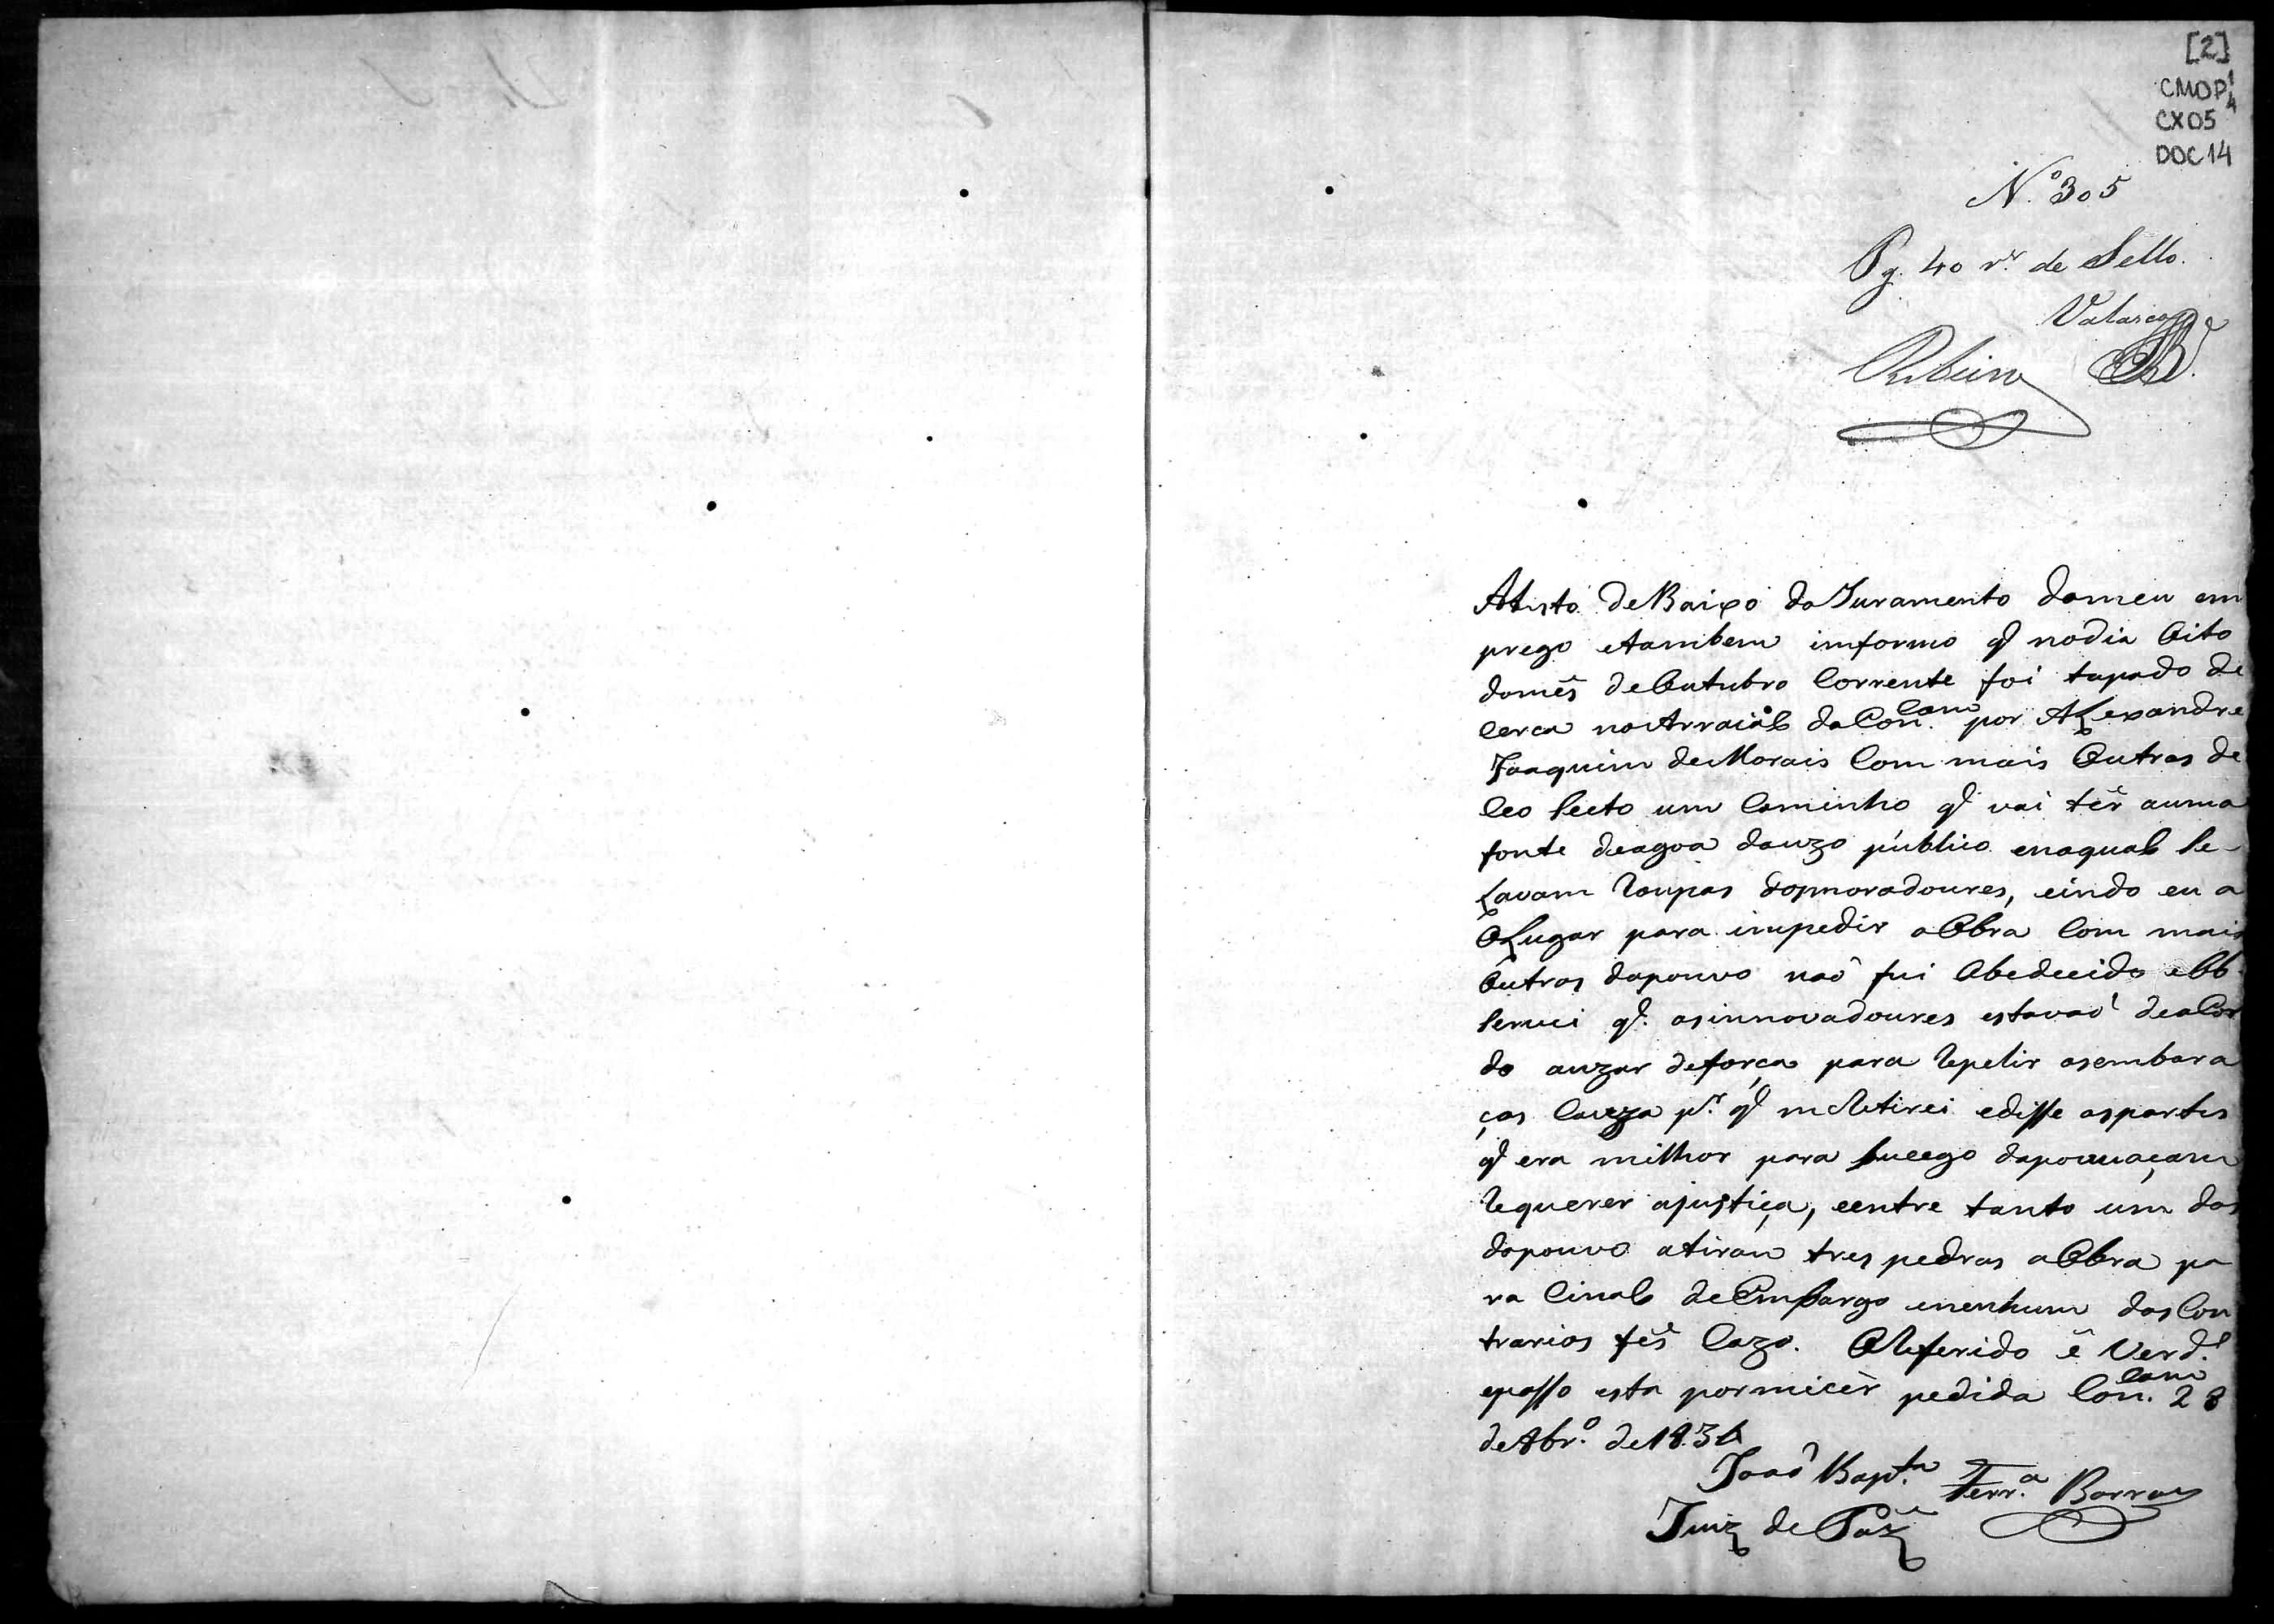 [2]
CMOP 1/4
CX05
DOC 14
Nº 305
Pg. 40 rs. de Sello.
Valasco
Ribeiro
Atesto deBaixo do Juramento domeu em
prego etambem imformo q nodia Oito
domês deOutubro Corrente foi tapado de
Cerca noArraial daConcam por Alexandre
Joaquim deMorais Com mais Outros de
Ceo um Caminho q vai têr auma
fonte deagoa douzo público enaqual Se
Lavam Roupas dopmoradoures, eindo eu a
OLugar para impedir aObra Com mais
Outros dopouvo naõ fui Obedecido eOb
Servei q. osinnovadoures estavaõ deaCor
do auzar deforça para Repelir osembara
ços Cauza pr. q meRetirei edisse aspartes
q era milhor para Sucego dapouvaçam
Requerer ajustiça, eentre tanto um dos
dopouvo atirou tres pedras aObra pa
ra Cinal deEmbargo enenhum dosCon
trarios fês Cazo. ORefferido ê Verd.e
epasso esta pormicêr pedida Con.cam 28
de8br.o de1836
Joaõ Bap.ta Ferr.a Barros
Juiz de Páz